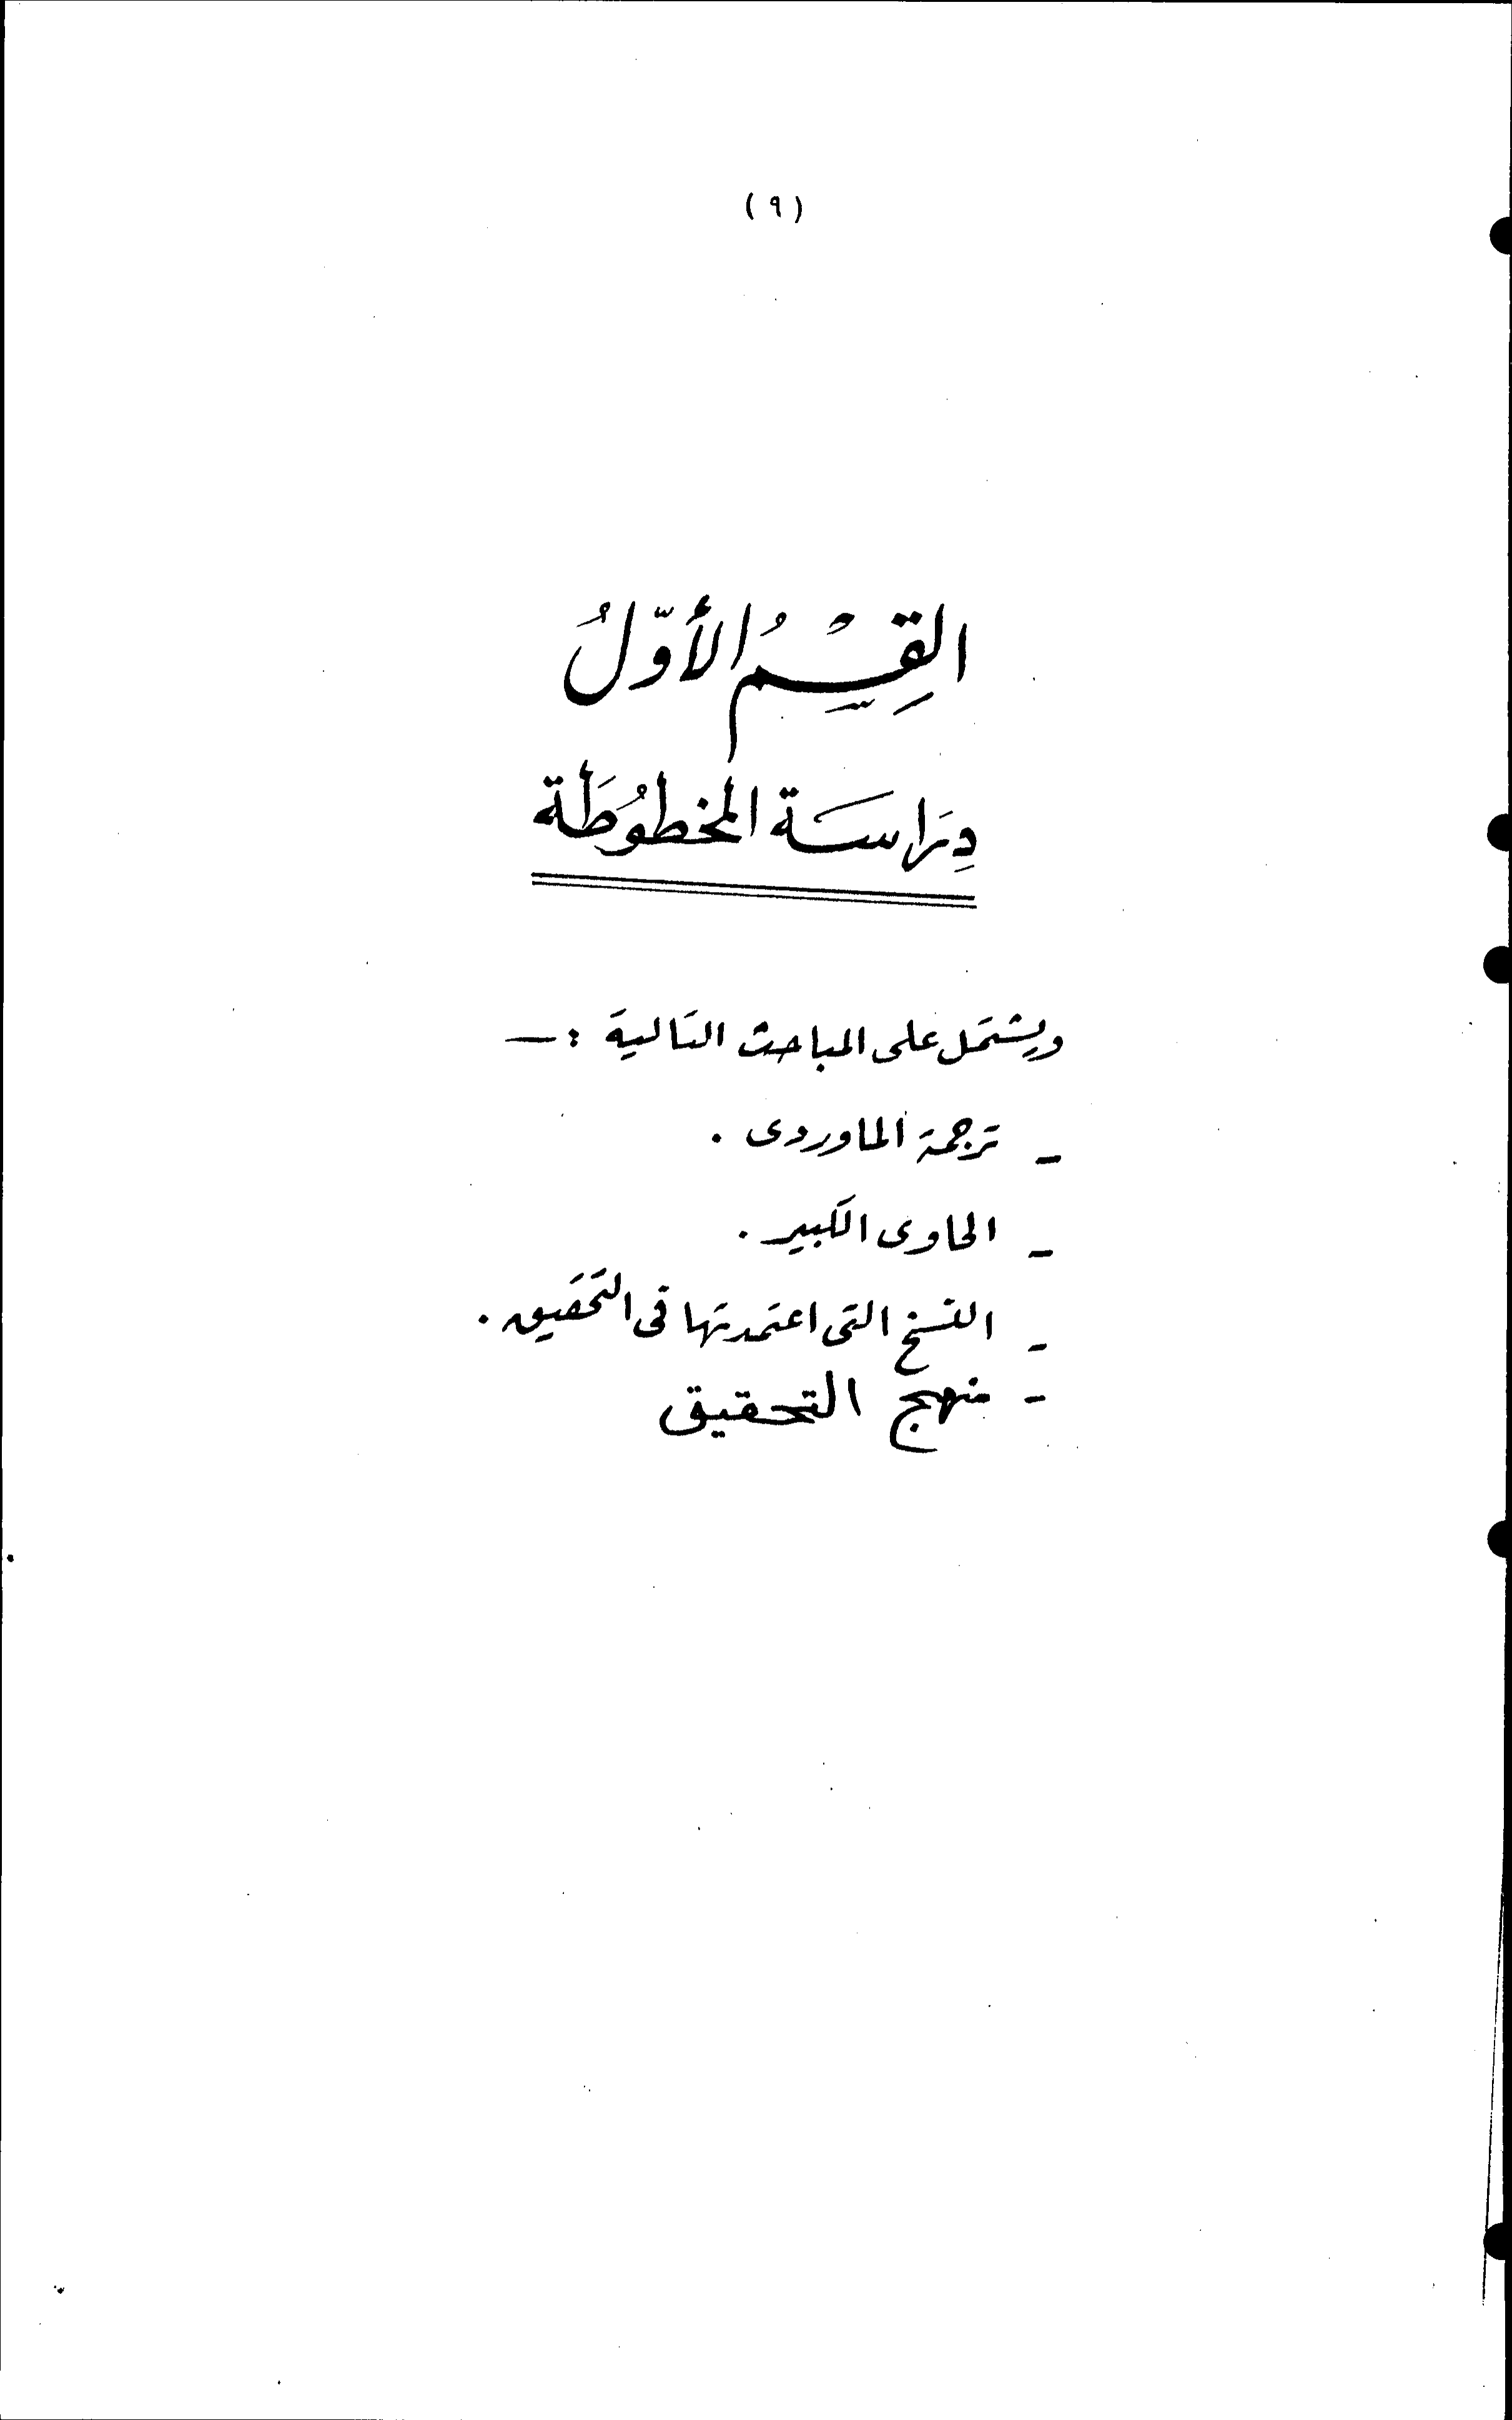 (٩)
القِسْمُ الأوّلُ
دِرَاسَة المخطُوطَة
ويشتمل على المباحث التالية :ـ
ـ ترجمة الماوردى .
ـ الحاوى الكبير .
ـ النسخ التى اعتمدتها فى التحقيق .
- منهج التحقيق